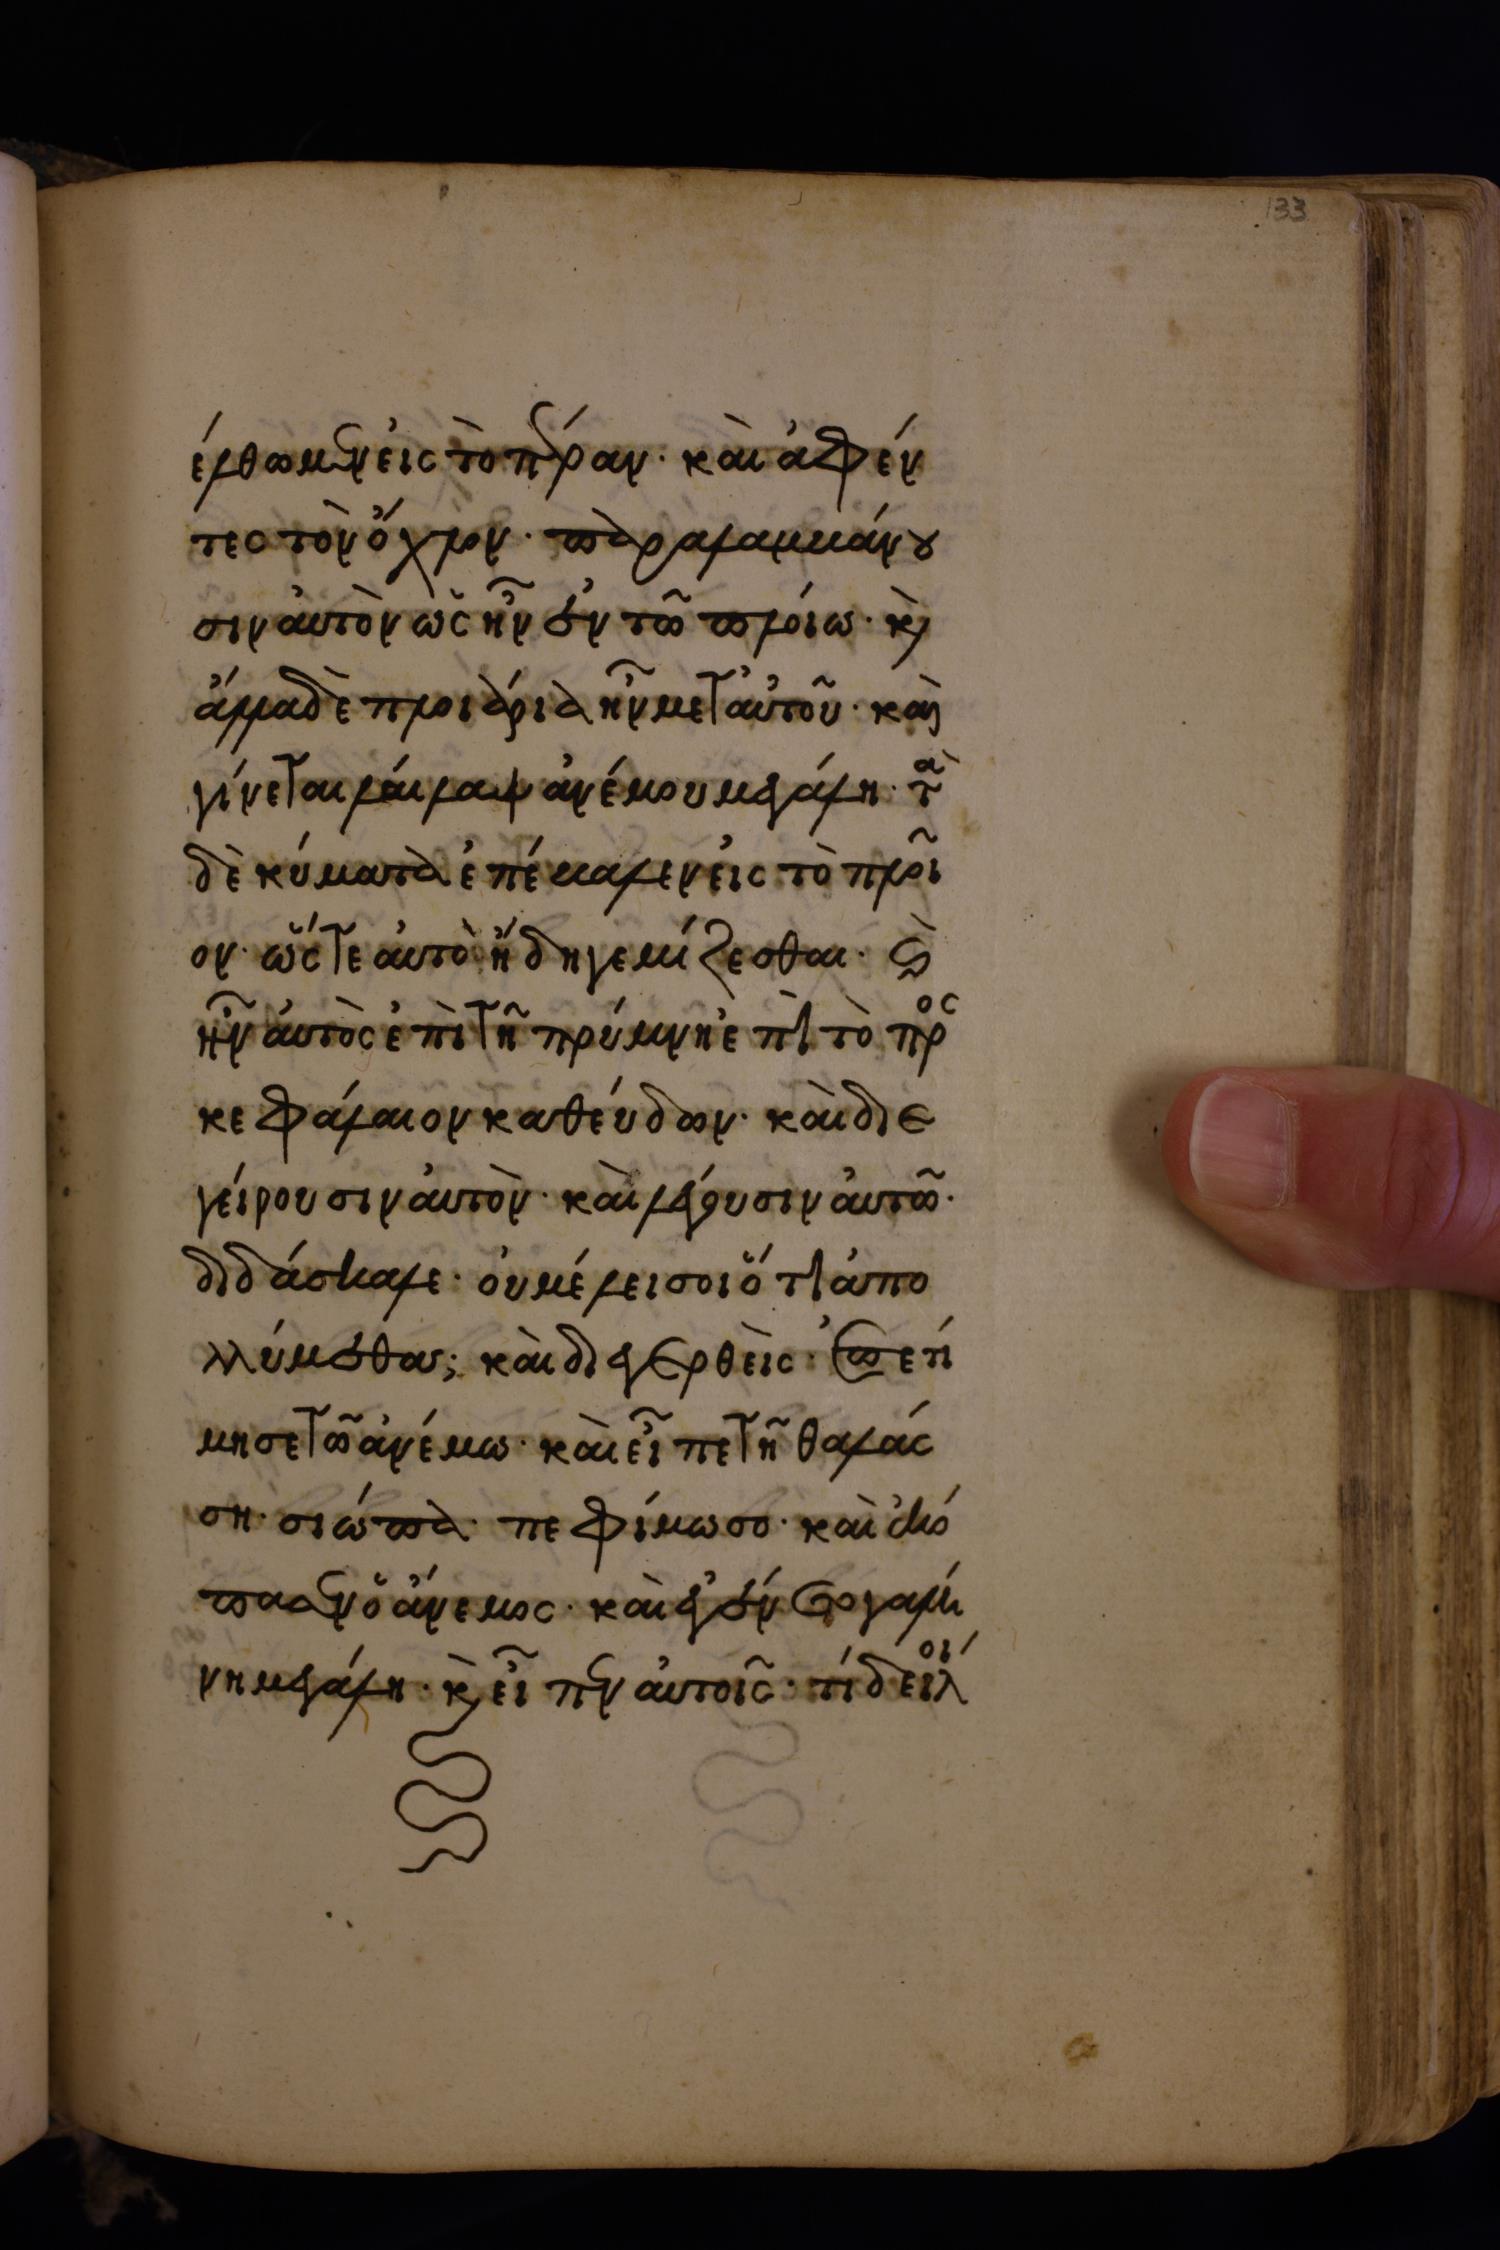 133
έλθωμεν εἰς τὸ πέραν· καὶ ἀφέν
τες τὸν ὄχλον· παραλαμβάνου
σιν αὐτὸν ὡς ἦν ἐν τῶ πλοίω· κ(αὶ)
ἄλλα δὲ πλοιάρια ἦν μετ αὐτοῦ· καὶ
γίνεται λαίλαψ ἀνέμου μεγάλη· τὰ
δὲ κύματα ἐπέβαλεν εἰς τὸ πλοῖ
ον· ὥστε αὐτὸ ἤδη γεμίζεσθαι· κ(αὶ)
ἦν αὐτὸς ἐπὶ τῆ πρύμνη ἐπὶ τὸ προσ
κεφάλαιον καθεύδων· καὶ διε
γείρουσιν αὐτὸν· καὶ λέγουσιν αὐτῶ·
διδάσκαλε· οὐ μέλει σοι ὅτι ἀπο
λλύμεθα; καὶ διεγερθεὶς· ἐπετί
μησε τῶ ἀνέμω· καὶ εἶπε τῆ θαλάσ
ση· σιώπα· πεφίμωσο· καὶ ἐκό
πασεν ὁ ἄνεμος· καὶ ἐγένετο γαλή
νη μεγάλη· κ(αὶ) εἶπεν αὐτοῖς· τί δειλοί